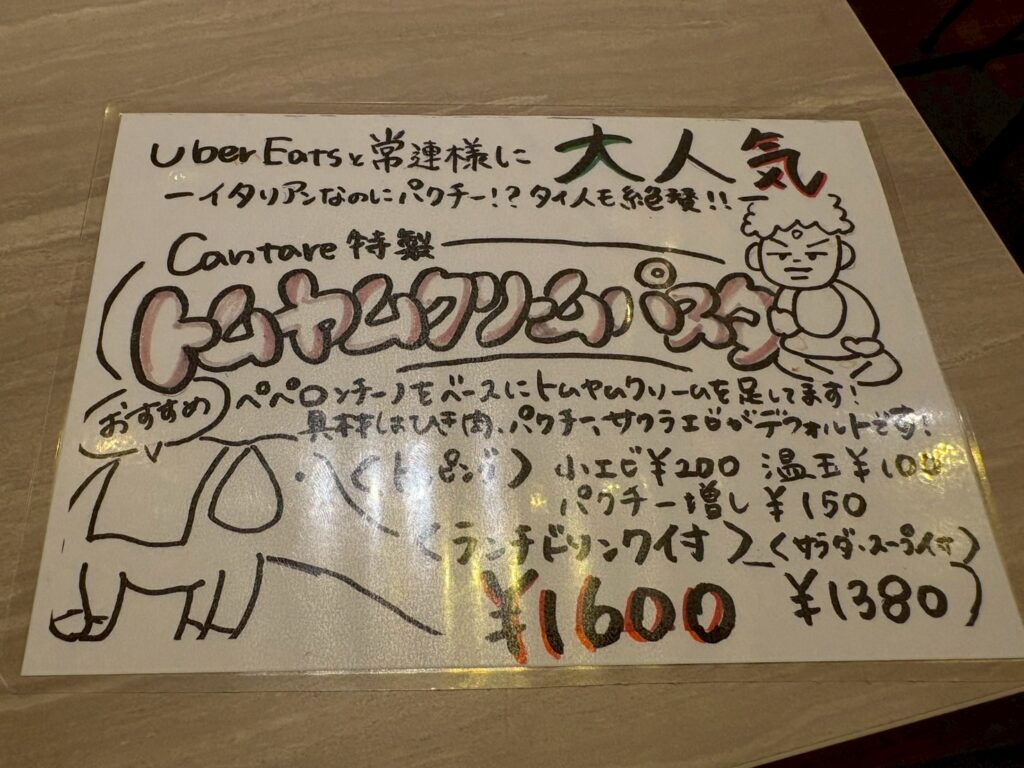 Uber Eatsと常連様に 大人気
ーイタリアンなのにパクチー!? タイ人も絶賛!!ー
Cantare 特製
トムヤムクリームパスタ
おすすめ
ペペロンチーノをベースにトムヤムクリームを足してます!
具材はひき肉、パクチー、サクラエビがデフォルトです!
〈トッピング〉 小エビ¥200 温玉¥100
パクチー増し ¥150
〈ランチドリンク付〉 〈サラダ・スープ付〉
¥1600 ¥1380